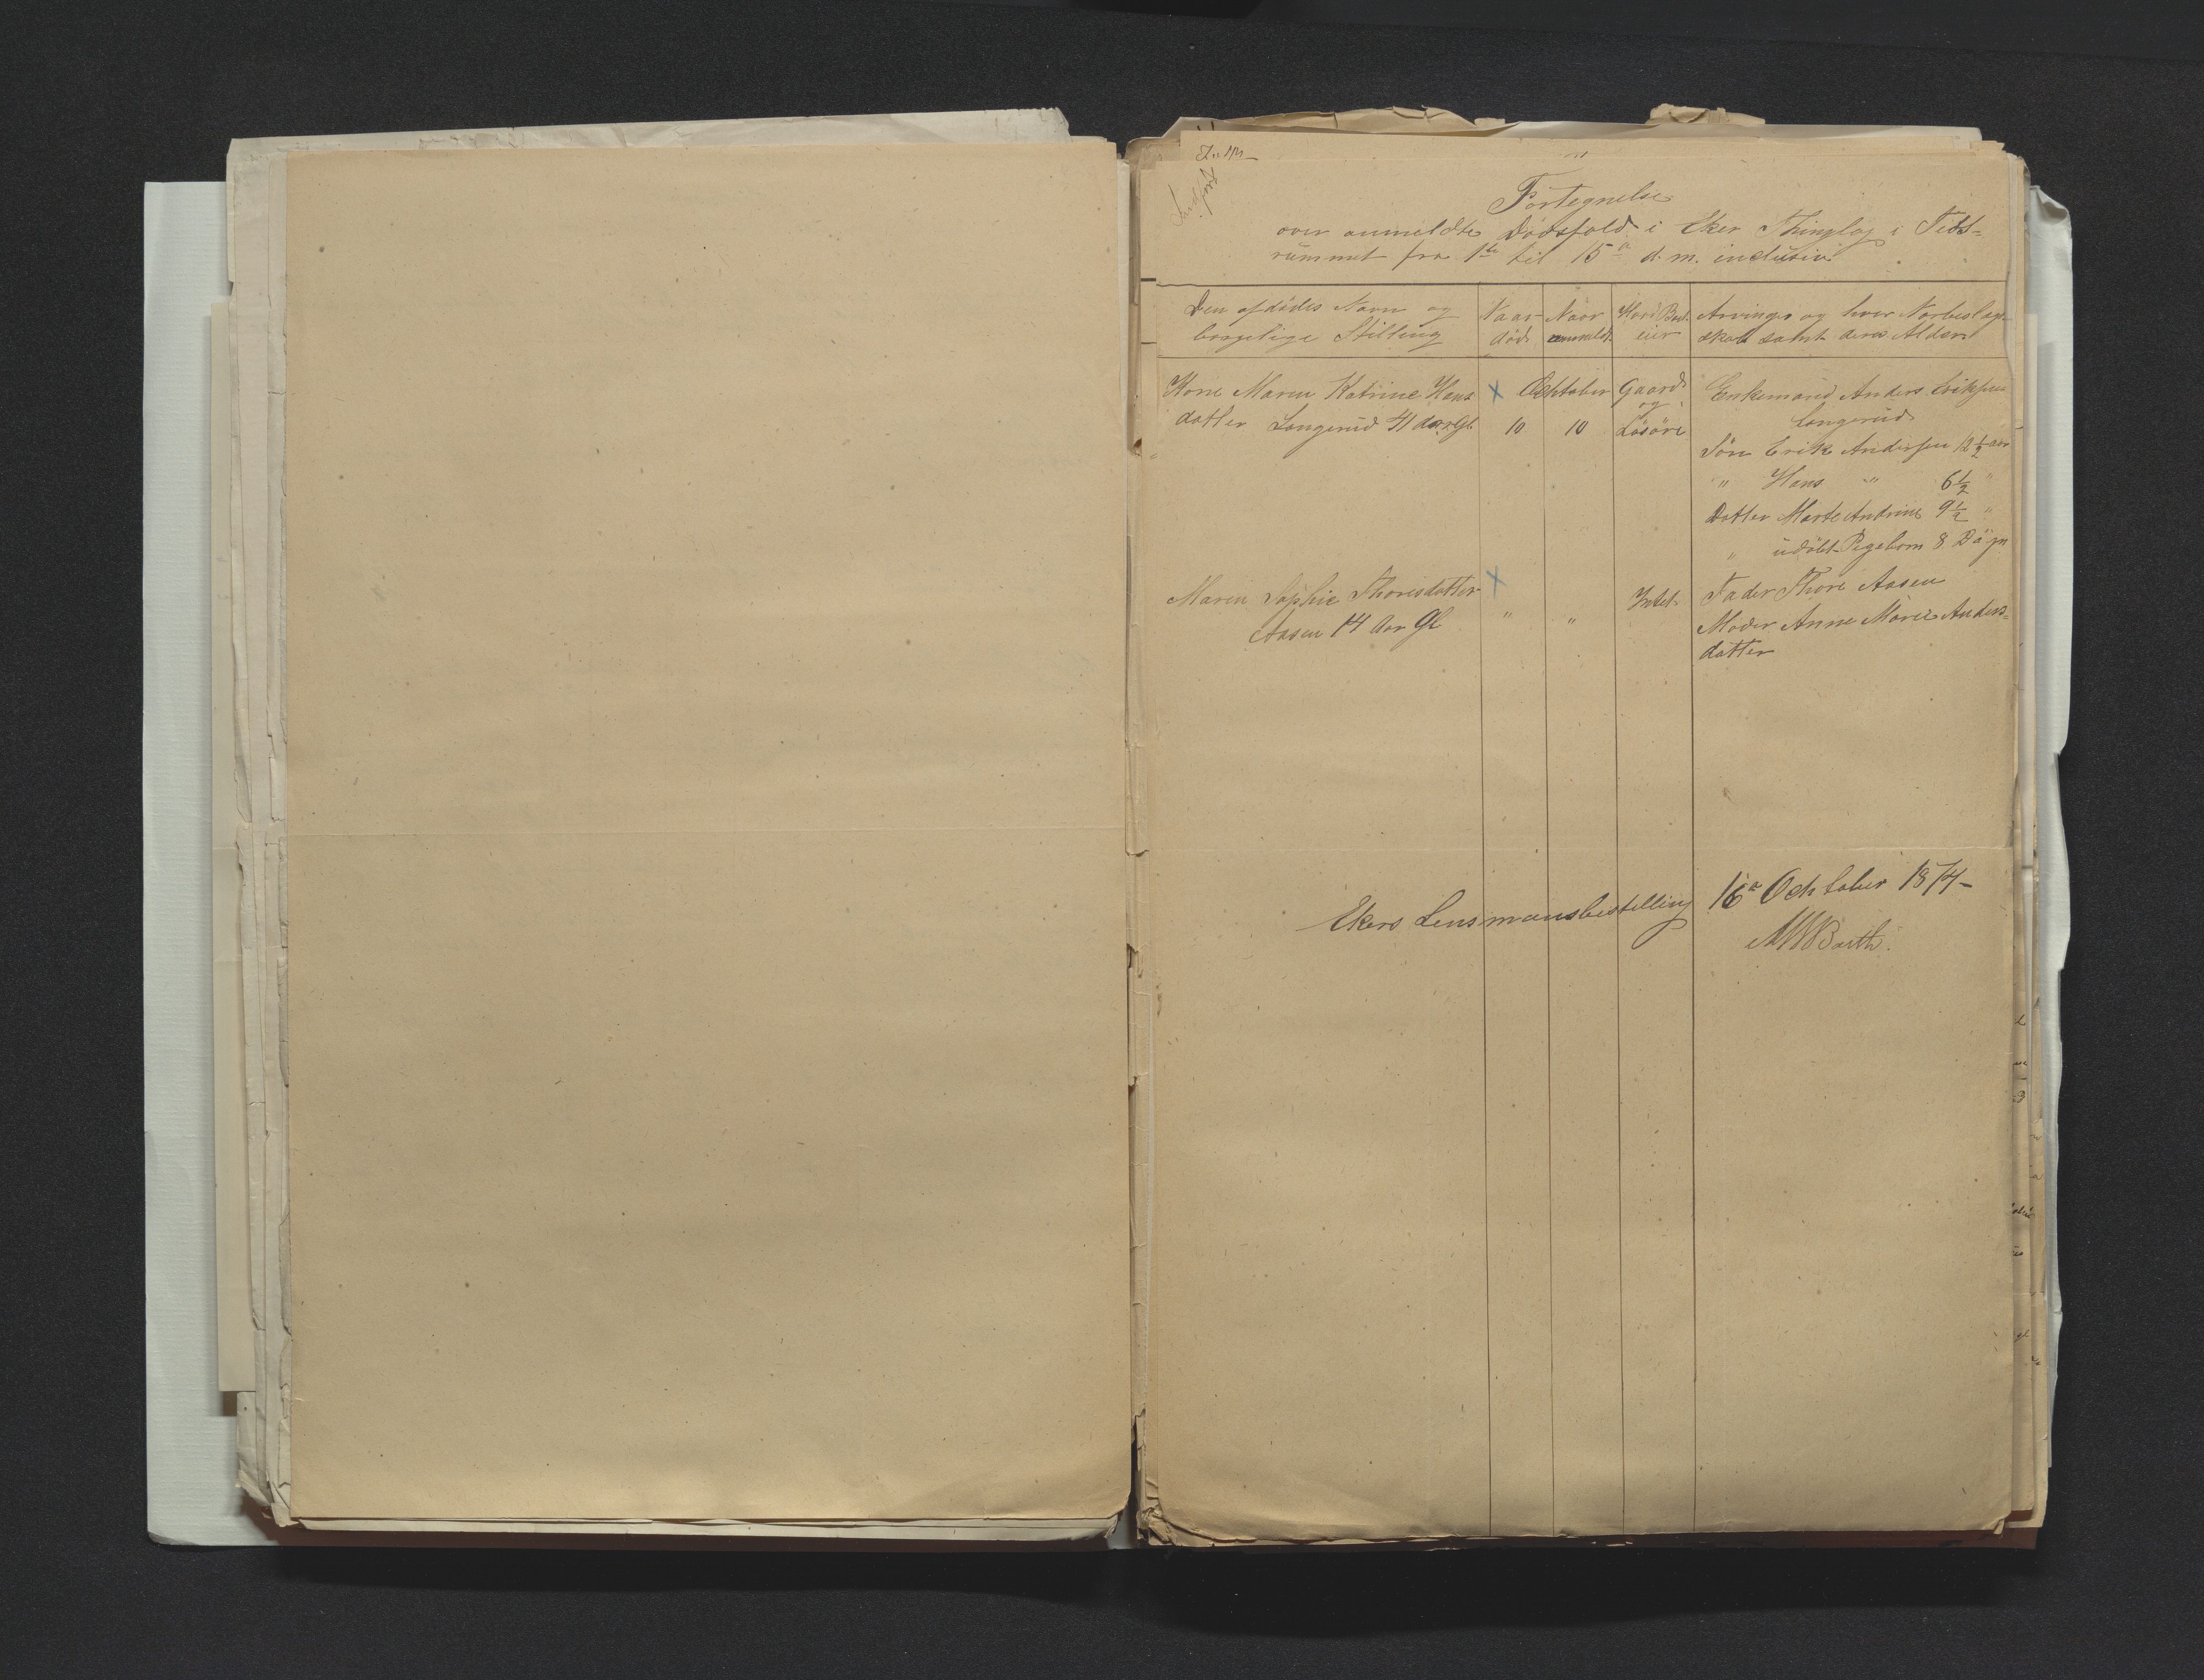 Indført
Fortegnelse
over anmeldte Dødsfald i Eker Thinglag i Tids-
rummet fra 1ste til 15de d. m. inclusiv.
Den afdødes Navn og
borgelige Stilling
Naar
død
Naar
anmeldt
Hvad Boet
eier
Arvinger og hver Norbeslægt-
skab samt deres Alder
Kone Maren Katrine Hans
datter Langerud 41 aar gl.
Ochtober
10
10
Gaard
og
Løsøre
Enkemand Anders Eriksen
Langerud
Søn Erik Andersen 12 1/2 aar
" Hans " 6 1/2 "
Datter Marte Andrine 9 1/2 "
" udøbt Pigebarn 8 Døgn
Maren Sophie Thoresdatter
Aasen 14 Aar Gl
"
"
Intet
Fader Thore Aasen
Moder Anne Marie Anders-
datter
Ekers Lensmansbestilling 16de Ochtober 1874
Barth.